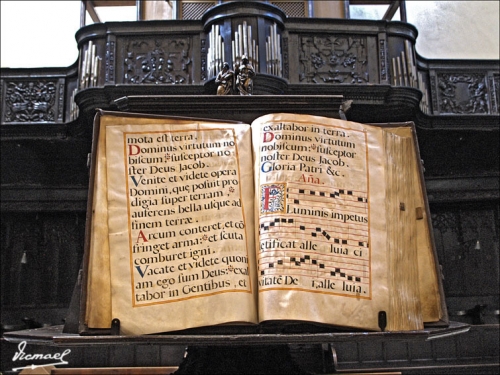 mota est terra.
Dominus virtutum no
biscum: susceptor no
ster Deus Jacob.
Venite et videte opera
Domini, quę posuit pro
digia super terram:
auferens bella usque ad
finem terræ.
Arcum conteret, et cō
fringet arma: et scuta
comburet igni.
Vacate et videte quoni
am ego sum Deus: exal
tabor in Gentibus, et
exaltabor in terra.
Dominus virtutum
nobiscum: susceptor
noster Deus Jacob.
Gloria Patri &c.
Aña.
Fluminis impetus
letificat alle luia ci
vitatē De i, alle luia.